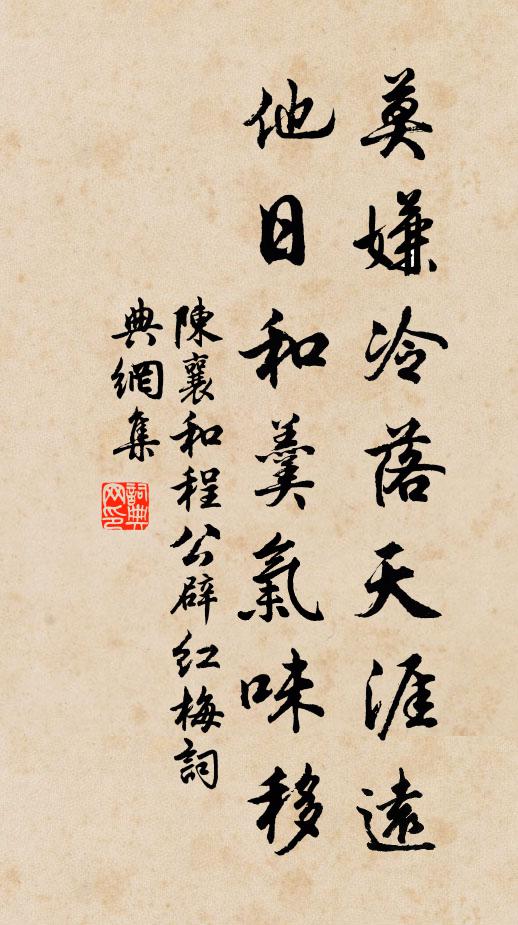 莫嫌冷落天涯遠
他日和羹氣味移
陳襄和程公辟紅梅詞
典網集
詞典
网印